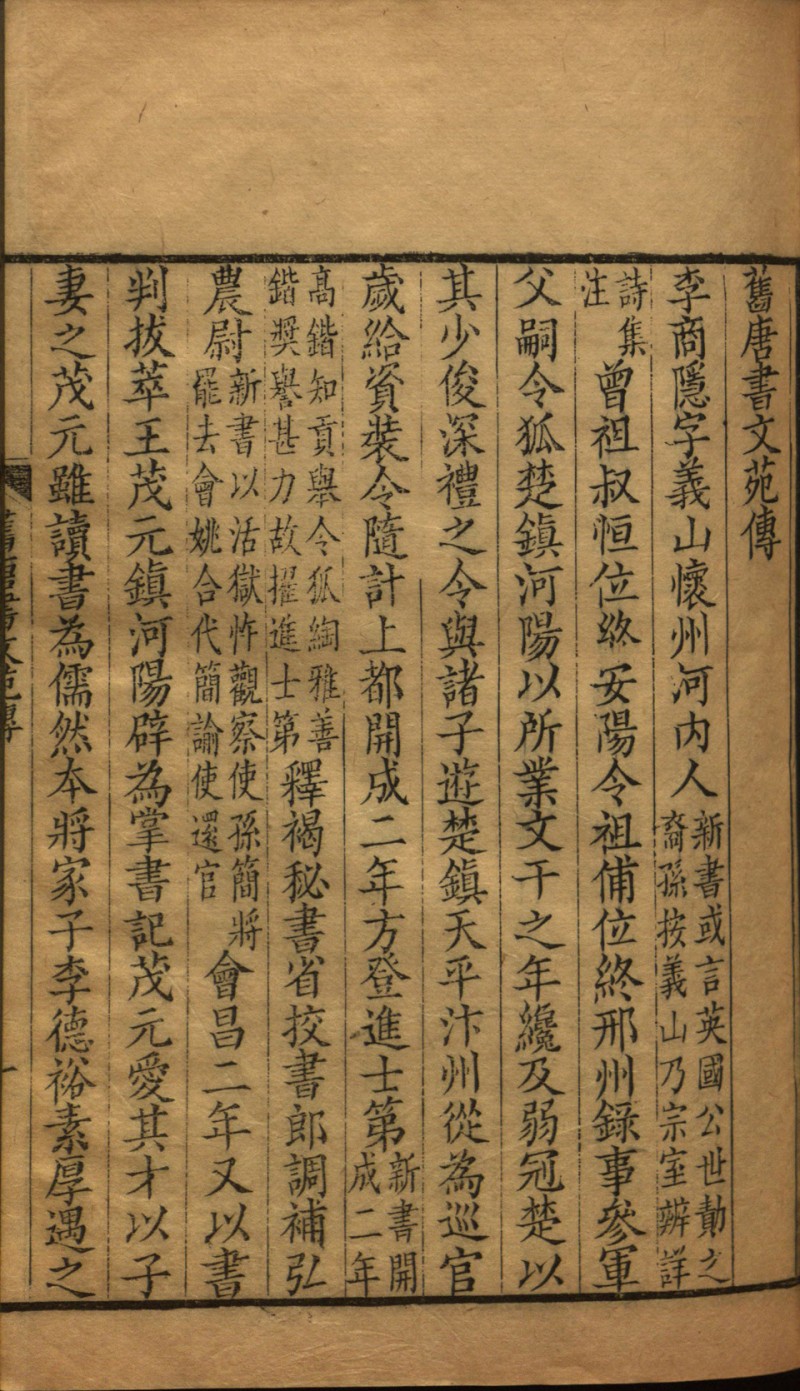 舊唐書文苑傳
李商隱字義山懷州河內人新書或言英國公世勣之裔孫按義山乃宗室辨詳
詩集注曾祖叔恒位終安陽令祖俌位終邢州錄事參軍
父嗣令狐楚鎮河陽以所業文干之年纔及弱冠楚以
其少俊深禮之令與諸子遊楚鎮天平汴州從為巡官
歲給資裝令隨計上都開成二年方登進士第新書開成二年
高鍇知貢舉令狐綯雅善鍇奬譽甚力故擢進士第釋褐秘書省挍書郎調補弘
農尉新書以活獄忤觀察使孫簡將罷去會姚合代簡諭使還官會昌二年又以書
判拔萃王茂元鎮河陽辟為掌書記茂元愛其才以子
妻之茂元雖讀書為儒然本將家子李德裕素厚遇之
舊唐書文苑傳
一